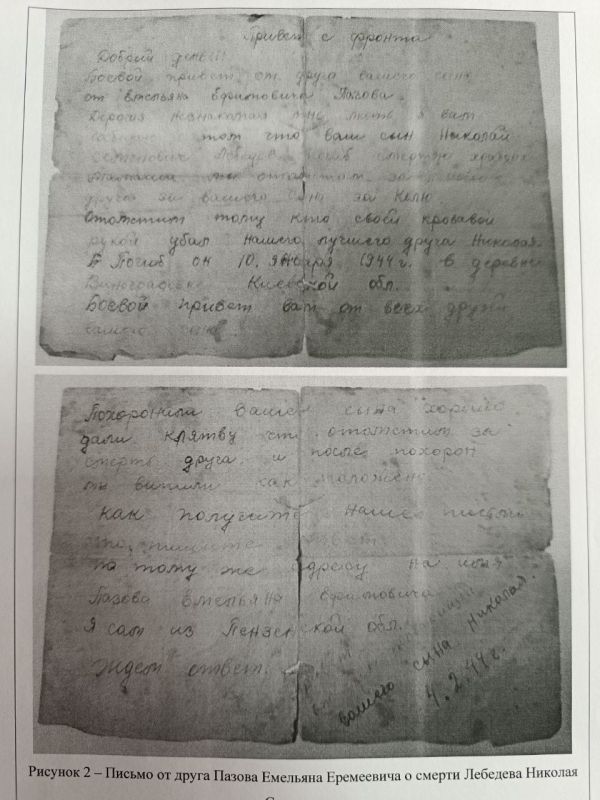 Привет с фронта
Добрый день!!!
Боевой привет от друга вашего сына
от Емельяна Ефимовича Пазова.
Дорогая незнакомая мне мать я вам
тот что ваш сын Николай
Лебедев погиб смертью храбрых
мы отомстим за
друга за вашего сына за Колю.
Отомстим тому кто своей кровавой
рукой убал нашего лучшего друга Николая.
Погиб он 10. января 1944 г. в деревне
Киевской обл.
Боевой привет вам от всех друзей
вашего сына
Похоронили вашего сына хорошо
дали клятву что отомстим за
смерть друга и после похорон
мы выпили как положено
Как получите наше письмо
то пишите ответ
по тому же адресу на имя
Пазова Емельяна Ефимовича
Я сам из Пензенской обл.
Ждем ответ.
вашего сына Николая.
4.2.44 г.
Рисунок 2 – Письмо от друга Пазова Емельяна Еремеевича о смерти Лебедева Николая